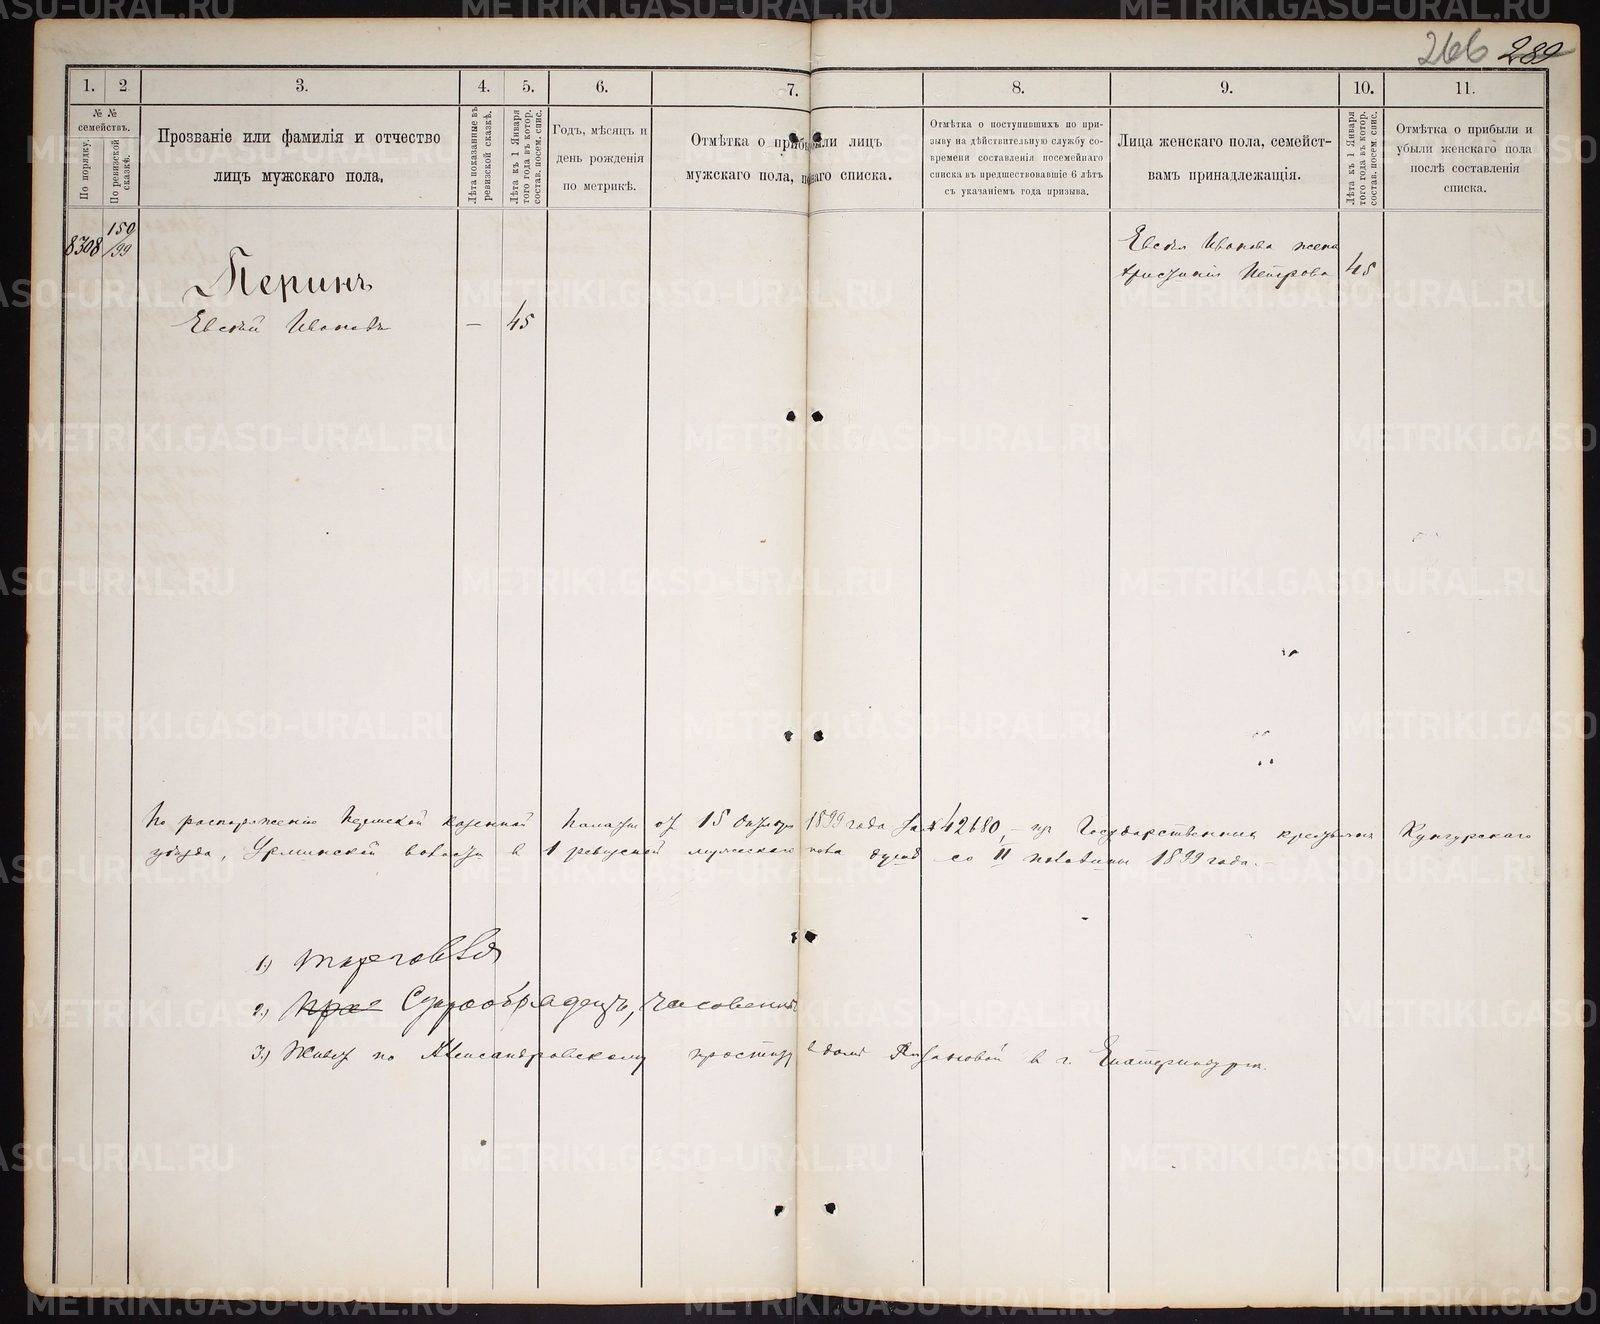 266 289
1. 2 3. 4. 5. 6. 7. 8. 9. 10. 11.
№ №
семействъ.
По порядку.
По ревизской сказкѣ.
Прозваніе или фамилія и отчество
лицъ мужскаго пола.
Лѣта показанные въ
ревизской сказкѣ.
Лѣта къ 1 Января
того года въ котор.
состав. посем. спис.
Годъ, мѣсяцъ и
день рожденія
по метрикѣ.
Отмѣтка о прибыли лицъ
мужскаго пола, новаго списка.
Отмѣтка о поступившихъ по при-
зыву на дѣйствительную службу со-
времени составленія посемейнаго
списка въ предшествовавшіе 6 лѣтъ
съ указаніемъ года призыва.
Лица женскаго пола, семейст-
вамъ принадлежащія.
Лѣта къ 1 Января
того года въ котор.
состав. посем. спис.
Отмѣтка о прибыли и
убыли женскаго пола
послѣ составленія
списка.
8308 150/99
Перинъ
Евсѣй Ивановъ — 45
Евсѣя Иванова жена
Петрова 45
По распоряженію Пермской казенной Палаты отъ 15 Октября 1899 года за № 42680, – изъ Государственныхъ крестьянъ Кунгурскаго
уѣзда, Урминской волости въ 1 ревизской мужскаго пола душѣ со II половины 1899 года. –
1.) торговля
2.) Пра Старообрядецъ, часовенный
3.) Живетъ по Александровскому проспекту въ домѣ Рязановой въ г. Екатеринбургѣ.
METRIKI.GASO-URAL.RU